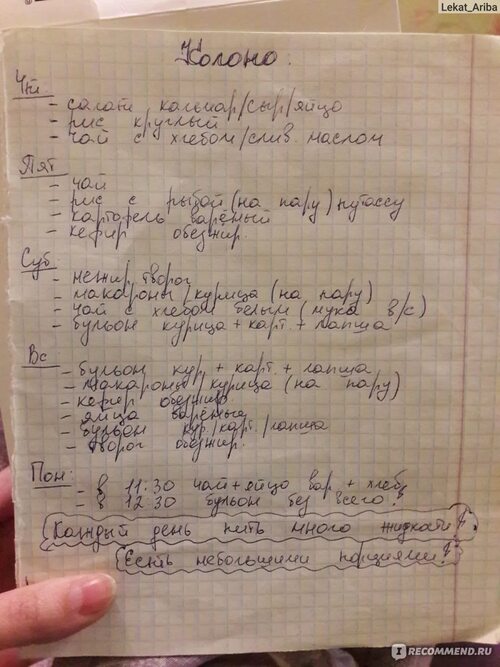 Lekat_Ariba
Колоно.
Чт.
- салат кальмар/сыр/яйцо
- рис круглый
- чай с хлебом/слив. маслом
Пят
- чай
- рис с рыбой (на пару) путассу
- картофель варёный
- кефир обезжир.
Суб.
- нежир. творог
- макароны/курица (на пару)
- чай с хлебом белым (мука в/с)
- бульон курица + карт. + лапша
Вс
- бульон кур. + карт. + лапша
- макароны/курица (на пару)
- кефир обезжир
- яйца варёные
- бульон кур/карт./лапша
- творог обезжир.
Пон:
- в 11:30 чай + яйцо вар. + хлеб
- в 12:30 бульон без всего!
Каждый день пить много жидкости!
Есть небольшими порциями!
IRECOMMEND.RU